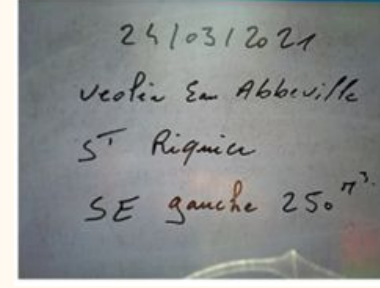 24/03/2021
Veolia Eau Abbeville
ST Riquier
SE gauche 250 m3.